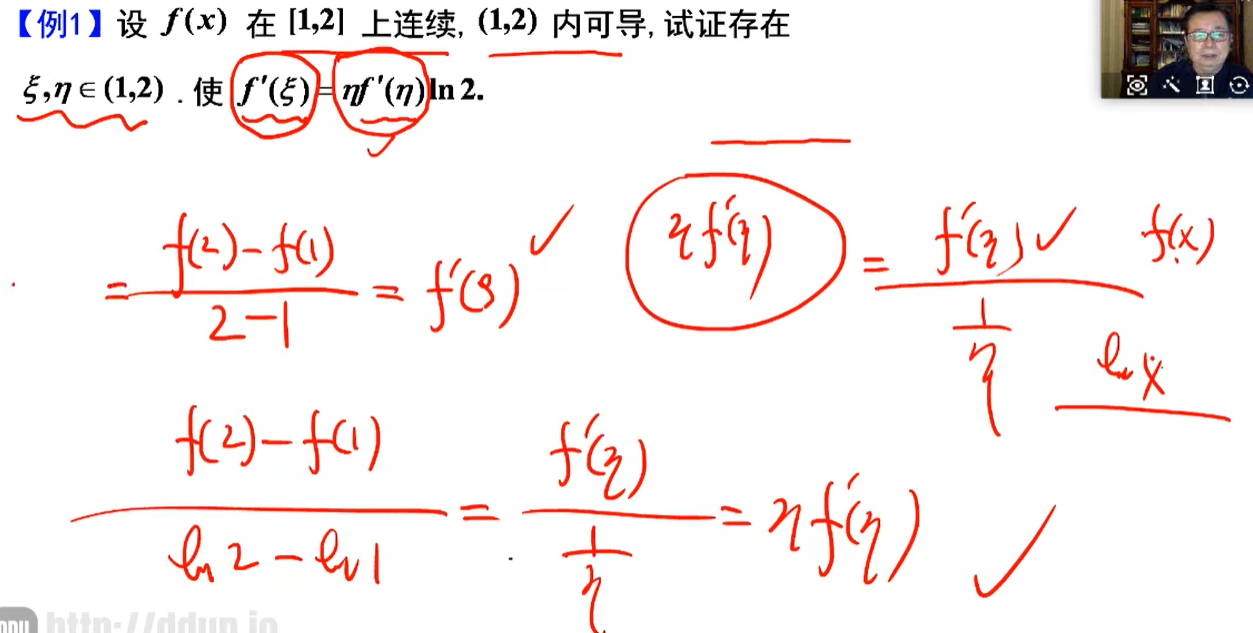 【例1】设 f(x) 在 [1,2] 上连续, (1,2) 内可导, 试证存在
ξ,η∈(1,2) . 使 f′(ξ)=ηf′(η)ln 2.
= \frac{f(2)-f(1)}{2-1} = f′(ξ) ✓
ηf′(η) = \frac{f′(η)}{\frac{1}{η}} ✓ f(x) ln x
\frac{f(2)-f(1)}{ln 2 - ln 1} = \frac{f′(η)}{\frac{1}{η}} = ηf′(η) ✓
http://ddup.io